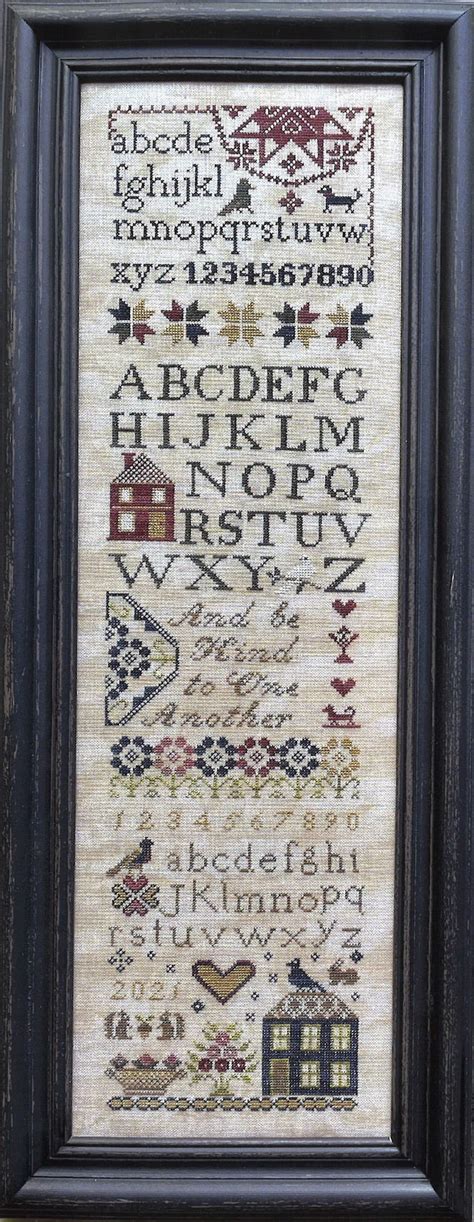 abcde
fghijkl
mnopqrstuvw
xyz 1234567890
ABCDEFG
HIJKLM
NOPQ
RSTUV
WXYZ
And be
Kind
to One
Another
1234567890
abcdefghi
jklmnopq
rstuvwxyz
2021